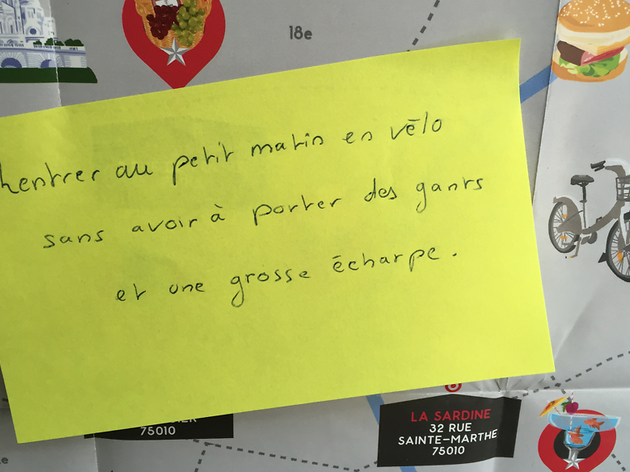 18e
Rentrer au petit matin en vélo
sans avoir à porter des gants
et une grosse écharpe.
75010
LA SARDINE
32 RUE
SAINTE-MARTHE
75010